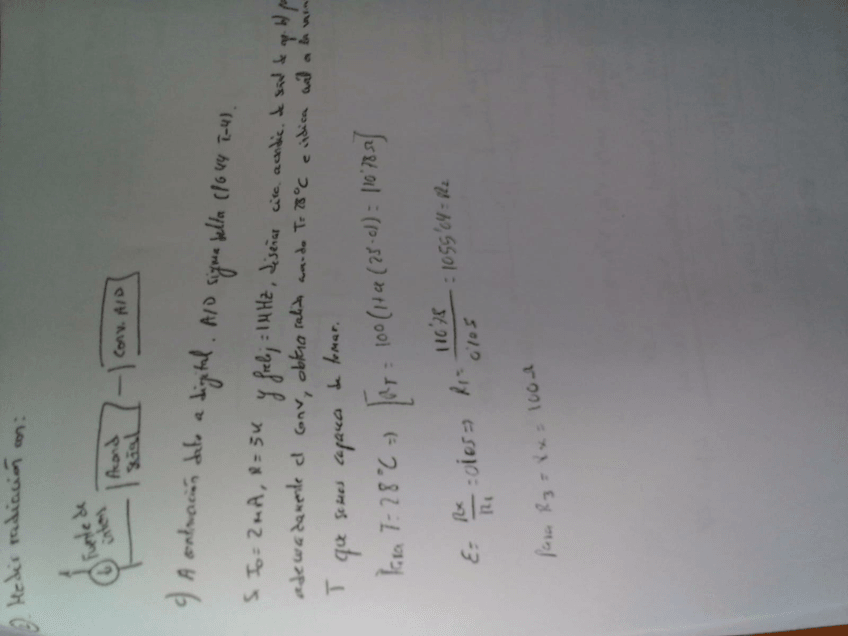 2. Medir radiación con:
Fuente de intens
Acond señal
Conv. A/D
c) A continuación dato a digital. A/D sigma delta (PG 44 T-4).
Si I₀=2mA, R=5K y freloj=1MHz, diseñar circ. acondic. de señal de ap. b)
adecuadamente el conv, obtén salida cuando T=28°C e indica cuál a la
T que somos capaces de tomar.
Para T=28°C ⇒ [R_T = 100(1+α(25-0)) = 110'78Ω]
ε = Rx/R₁ = 0'105 ⇒ R₁ = 110'78/0'105 = 1055'04 = R₂
Para R₃ = Rx = 100Ω